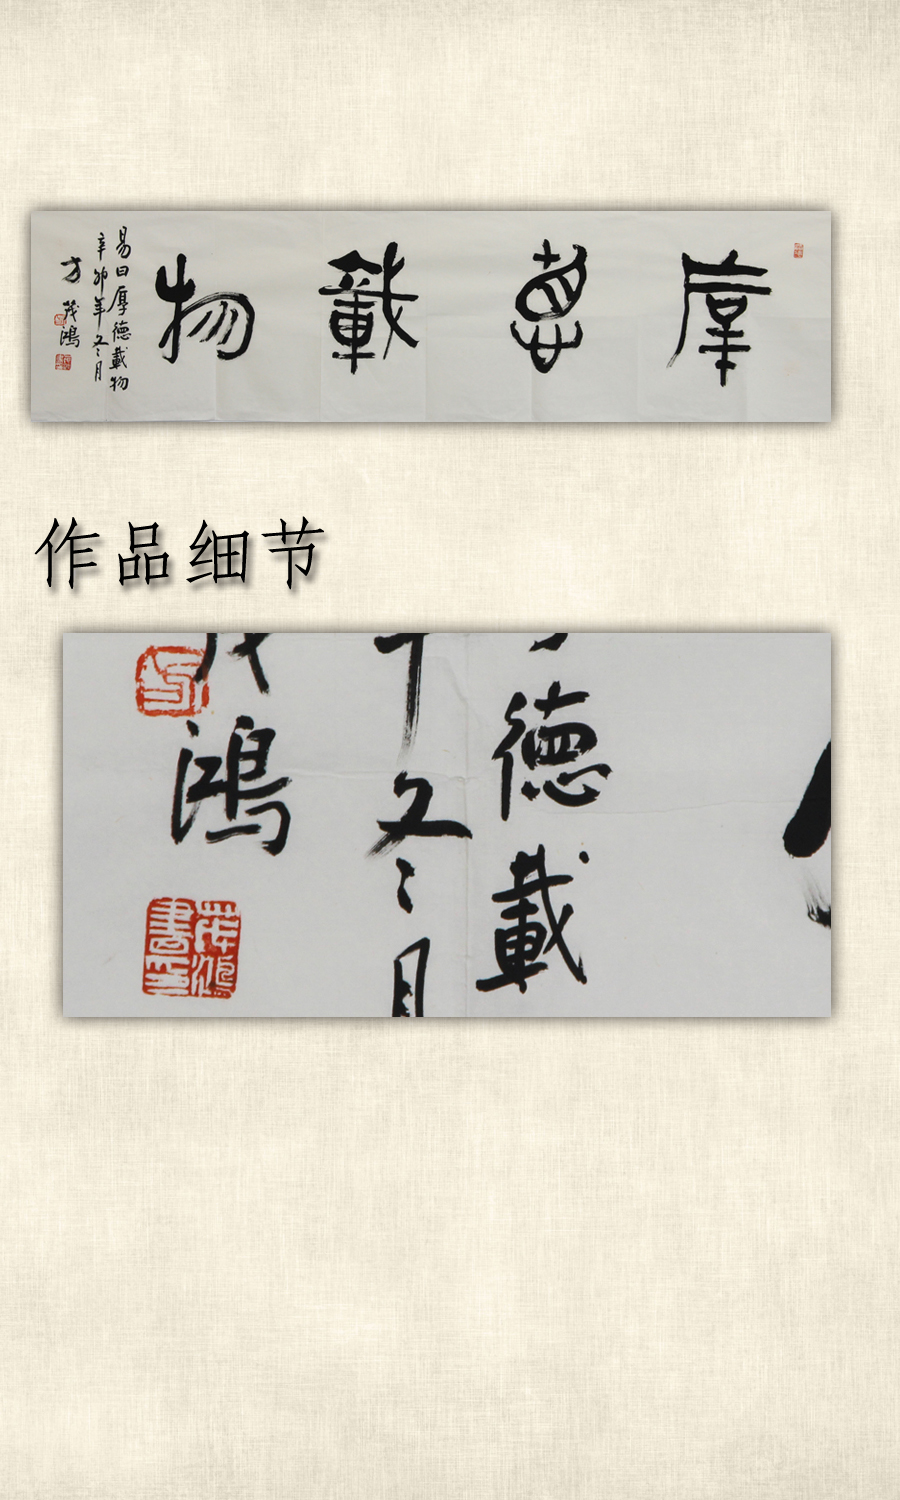 厚惪載物
易曰厚德載物
辛卯年冬月
方茂鴻
作品细节
德載
冬月
茂鴻
茂鴻書印